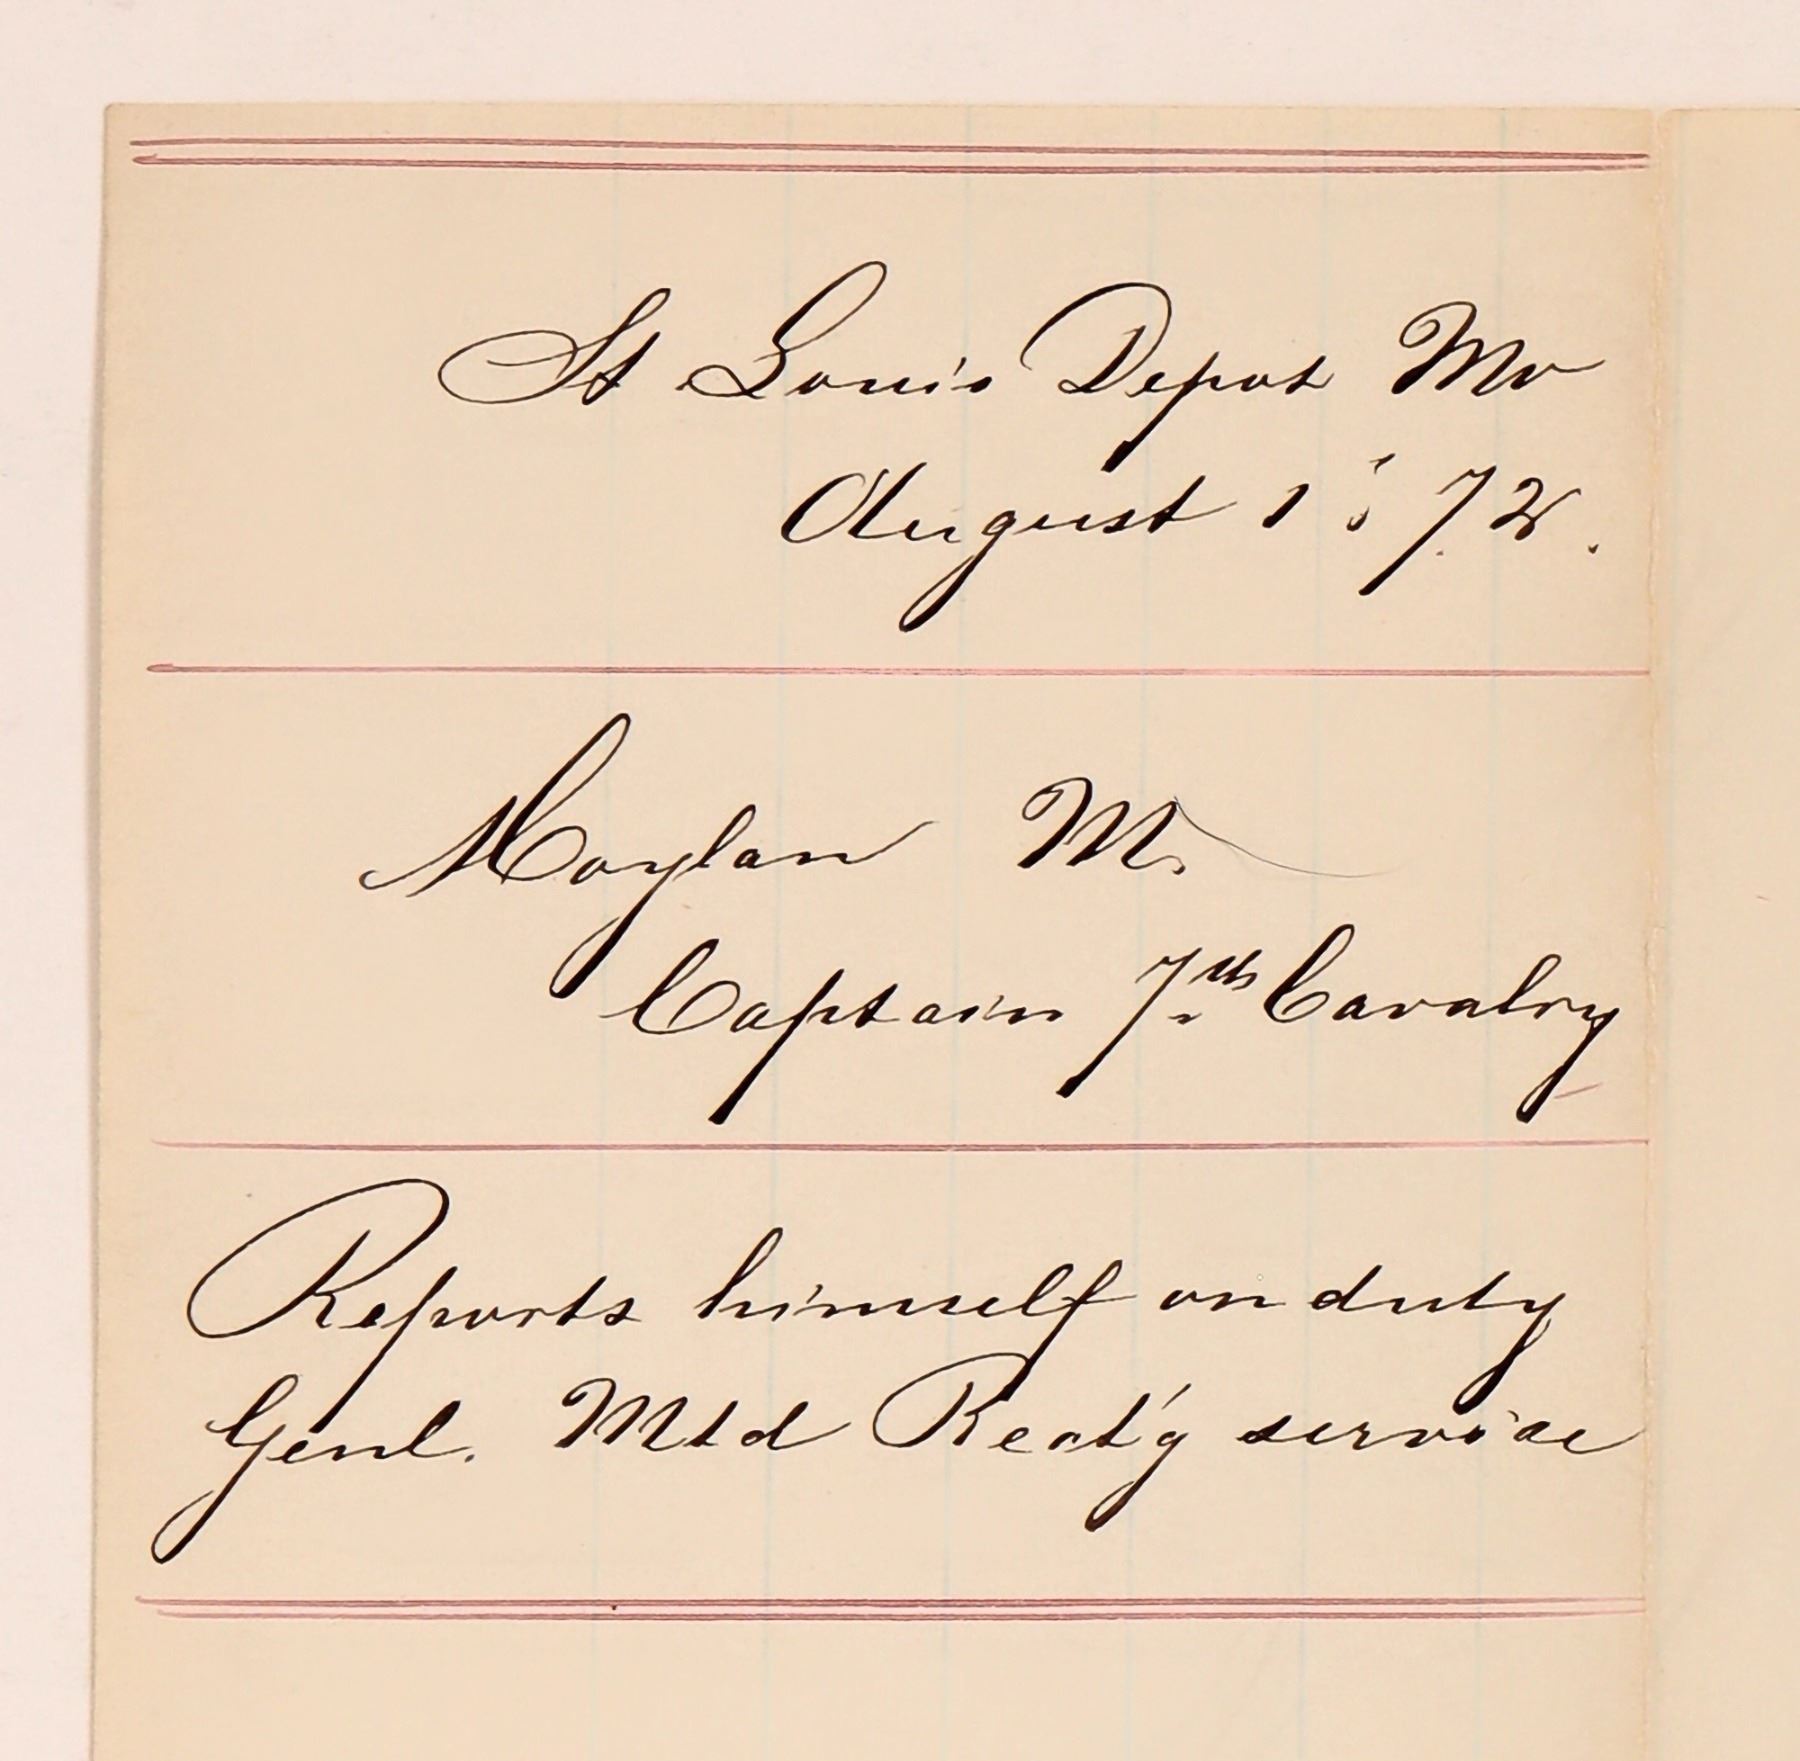 St Louis Depot Mo
August 1' 72.
Moylan M.
Captain 7th Cavalry
Reports himself on duty
Genl. Mtd Rect'g service